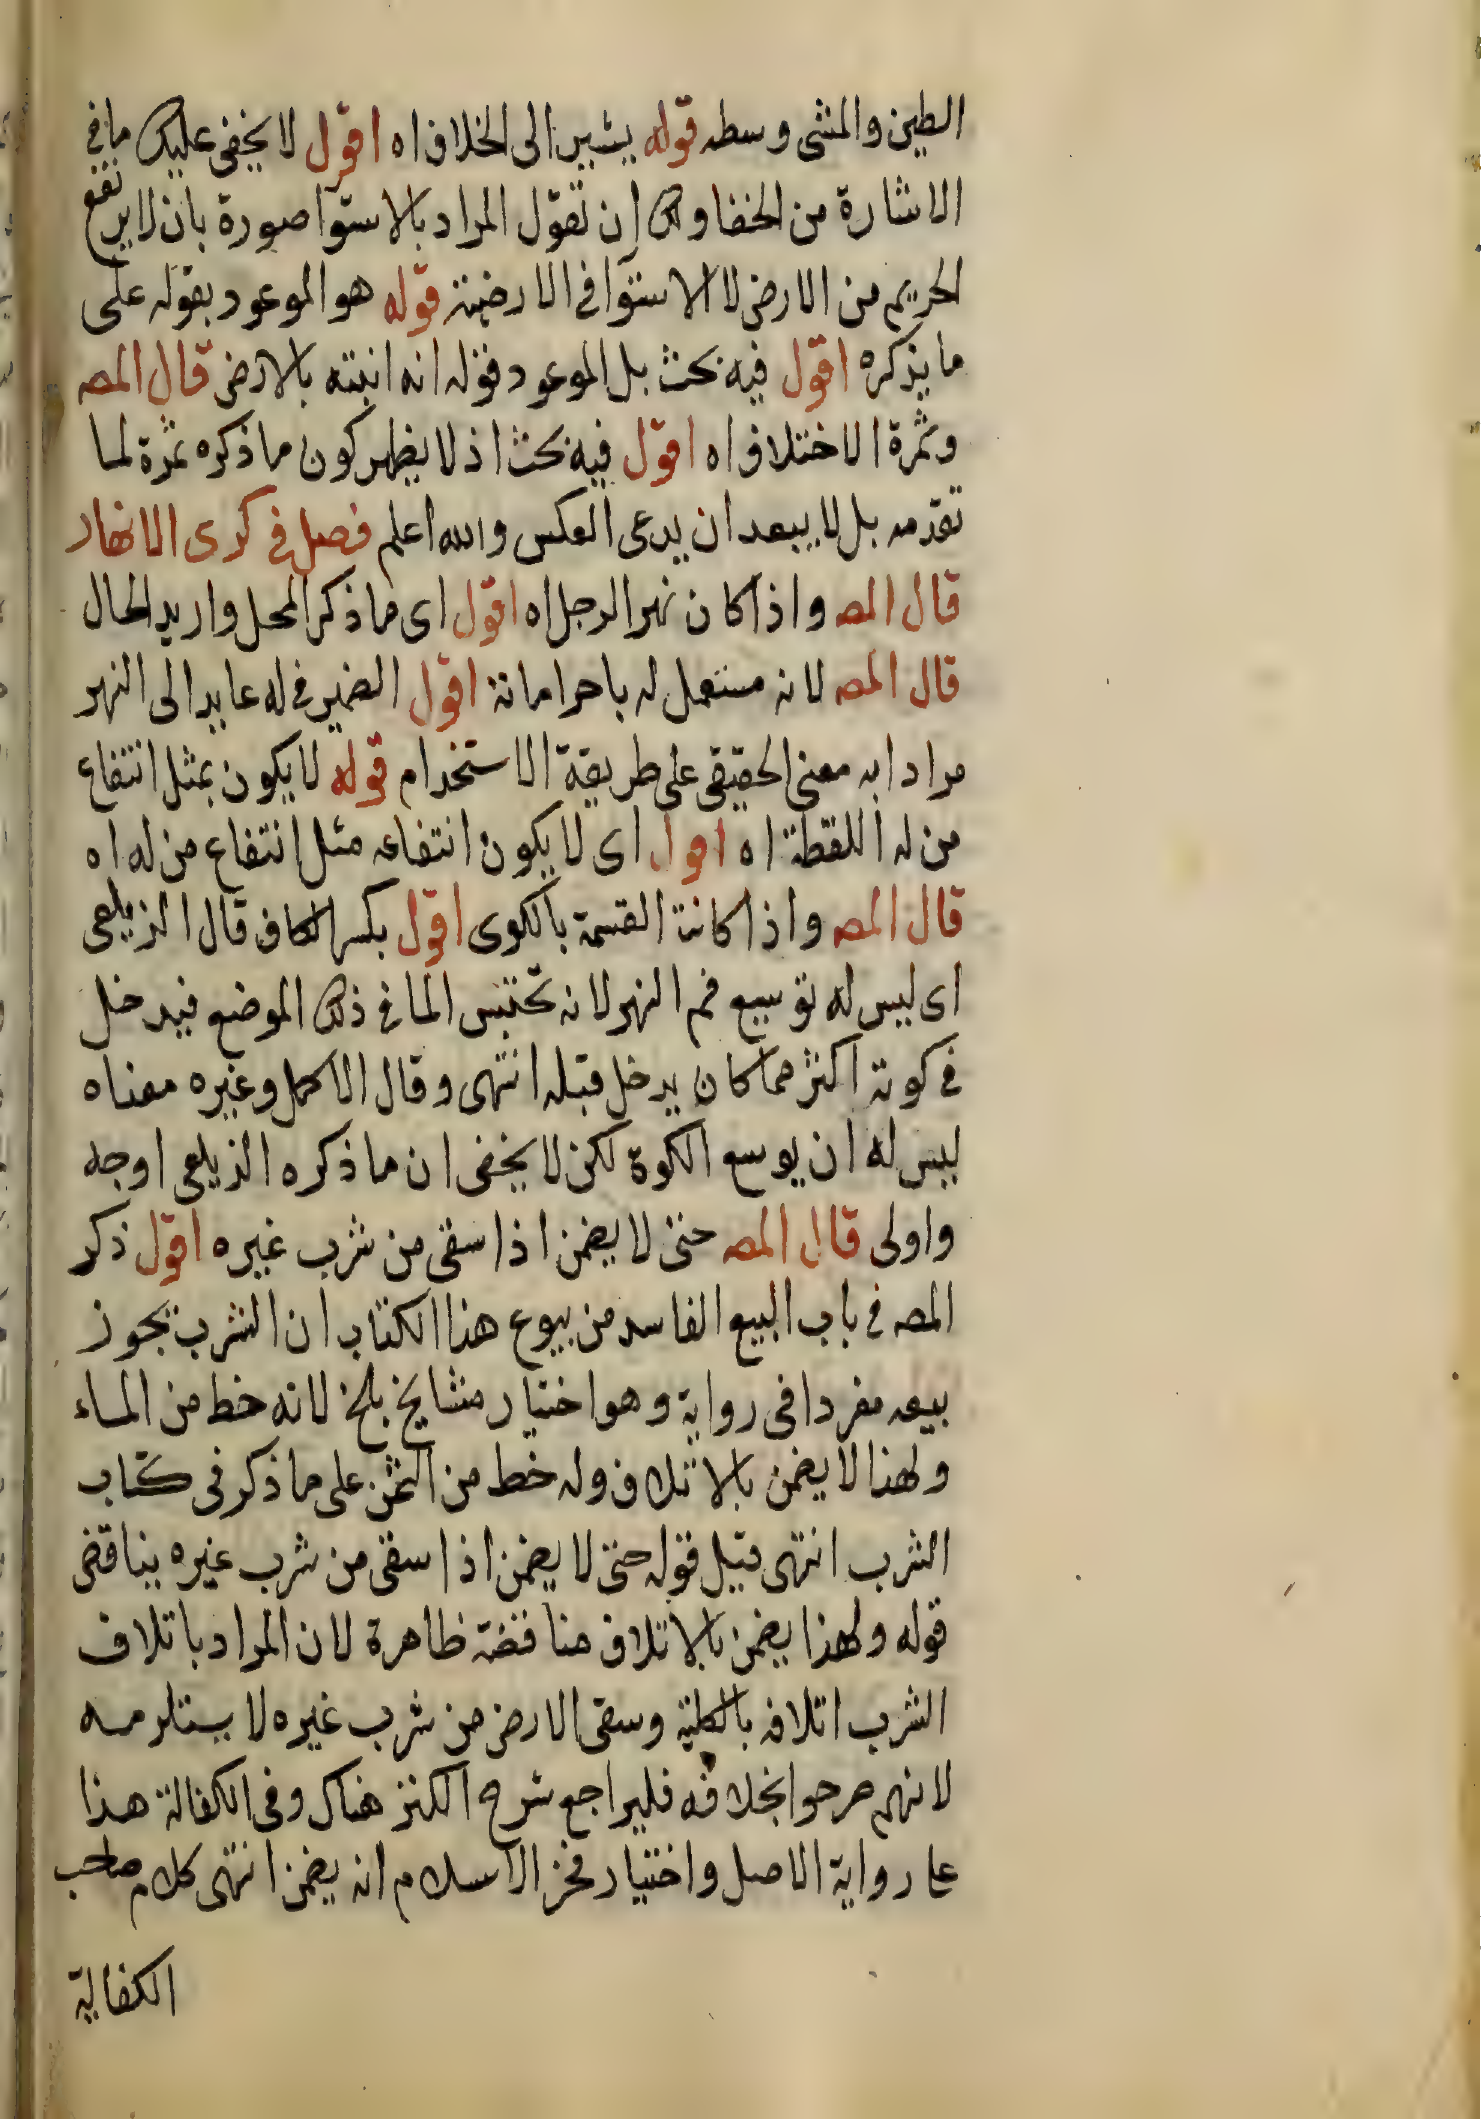 الطين والمشى وسطه قوله يشير الى الخلاف اه اقول لا يخفى عليك ما في
الاشارة من الخفا ولك ان تقول المراد بالاستوا صورة بان لا يرتفع
الحريم من الارض لا الاستوا في الارضية قوله هو الموعود بقوله على
ما يذكره اقول فيه بحث بل الموعود قوله انه اشبه بالارض قال المصه
وثمرة الاختلاف اه اقول فيه بحث اذ لا يظهر كون ما ذكره ثمرة لما
تقدمه بل لا يبعد ان يدعى العكس والله اعلم فصل في كرى الانهار
قال المصه واذا كان نهر الرجل اه اقول اى ما ذكر المحل واريد الحال
قال المصه لانه مستعمل له باجرا مائه اقول الضمير في له عايد الى النهر
مرادا به معنى الحقيقى على طريقة الاستخدام قوله لا يكون بمثل انتفاع
من له اللقطة اه اقول اى لا يكون انتفاعه مثل انتفاع من له اه
قال المصه واذا كانت القسمة بالكوى اقول بكسر الكاف قال الزيلعى
اى ليس له توسيع فم النهر لانه يحتبس الما في ذلك الموضع فيدخل
في كوته اكثر مما كان يدخل قبله انتهى وقال الاكمل وغيره معناه
ليس له ان يوسع الكوة لكن لا يخفى ان ما ذكره الزيلعى اوجه
واولى قال المصه حتى لا يضمن اذا سقى من شرب غيره اقول ذكر
المصه في باب البيع الفاسد من بيوع هذا الكتاب ان الشرب يجوز
بيعه مفردا فى رواية وهو اختيار مشايخ بلخ لانه حظ من الماء
ولهذا لا يضمن بالاتلاف وله حظ من الثمن على ما ذكر فى كتاب
الشرب انتهى قيل قوله حتى لا يضمن اذا سقى من شرب غيره يناقض
قوله ولهذا يضمن بالاتلاف مناقضة ظاهرة لان المراد باتلاف
الشرب اتلافه بالكلية وسقى الارض من شرب غيره لا يستلزمه
لانهم صرحوا بخلافه فليراجع شرح الكنز هناك وفى الكفالة هذا
على رواية الاصل واختيار فخر الاسلام انه يضمن انتهى كلام صاحب
الكفالية